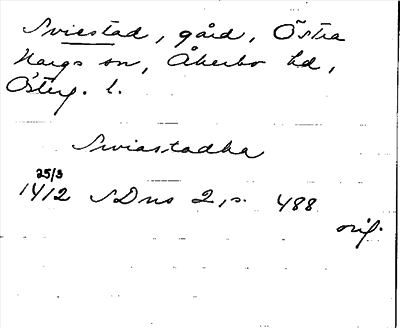 Sviestad, gård, Östra
Hargs sn, Åkerbo hd,
Österg. l.
Swiastadha
25/3
1412 SDns 2, s. 488
orig.